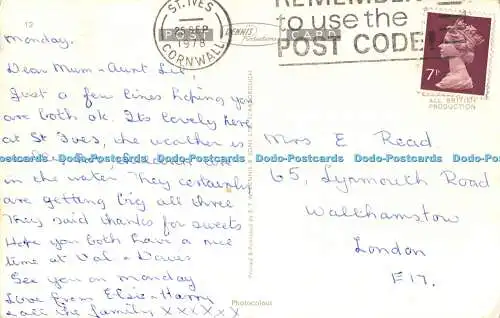 12
Monday.
Dear Mum - Aunt Lil,
Just a few lines hoping you
are both ok. Its lovely here
at St Ives, the weather is
in the water They certainly
are getting big all three
They said thanks for sweets
Hope you both have a nice
time at Val - Daves
See you on monday
Love from Elsie - Harry
all the family x x x x x x
ST. IVES
25 SEP
1978
CORNWALL
REMEMBER
to use the
POST CODE
POST CARD
DENNIS
Productions
7P
ALL BRITISH
PRODUCTION
Mrs E Read
65, Lynmouth Road
Walthamstow
London
E17.
Photocolour
Dodo-Postcards Dodo-Postcards Dodo-Postcards Dodo-Postcards Dodo-Postcards